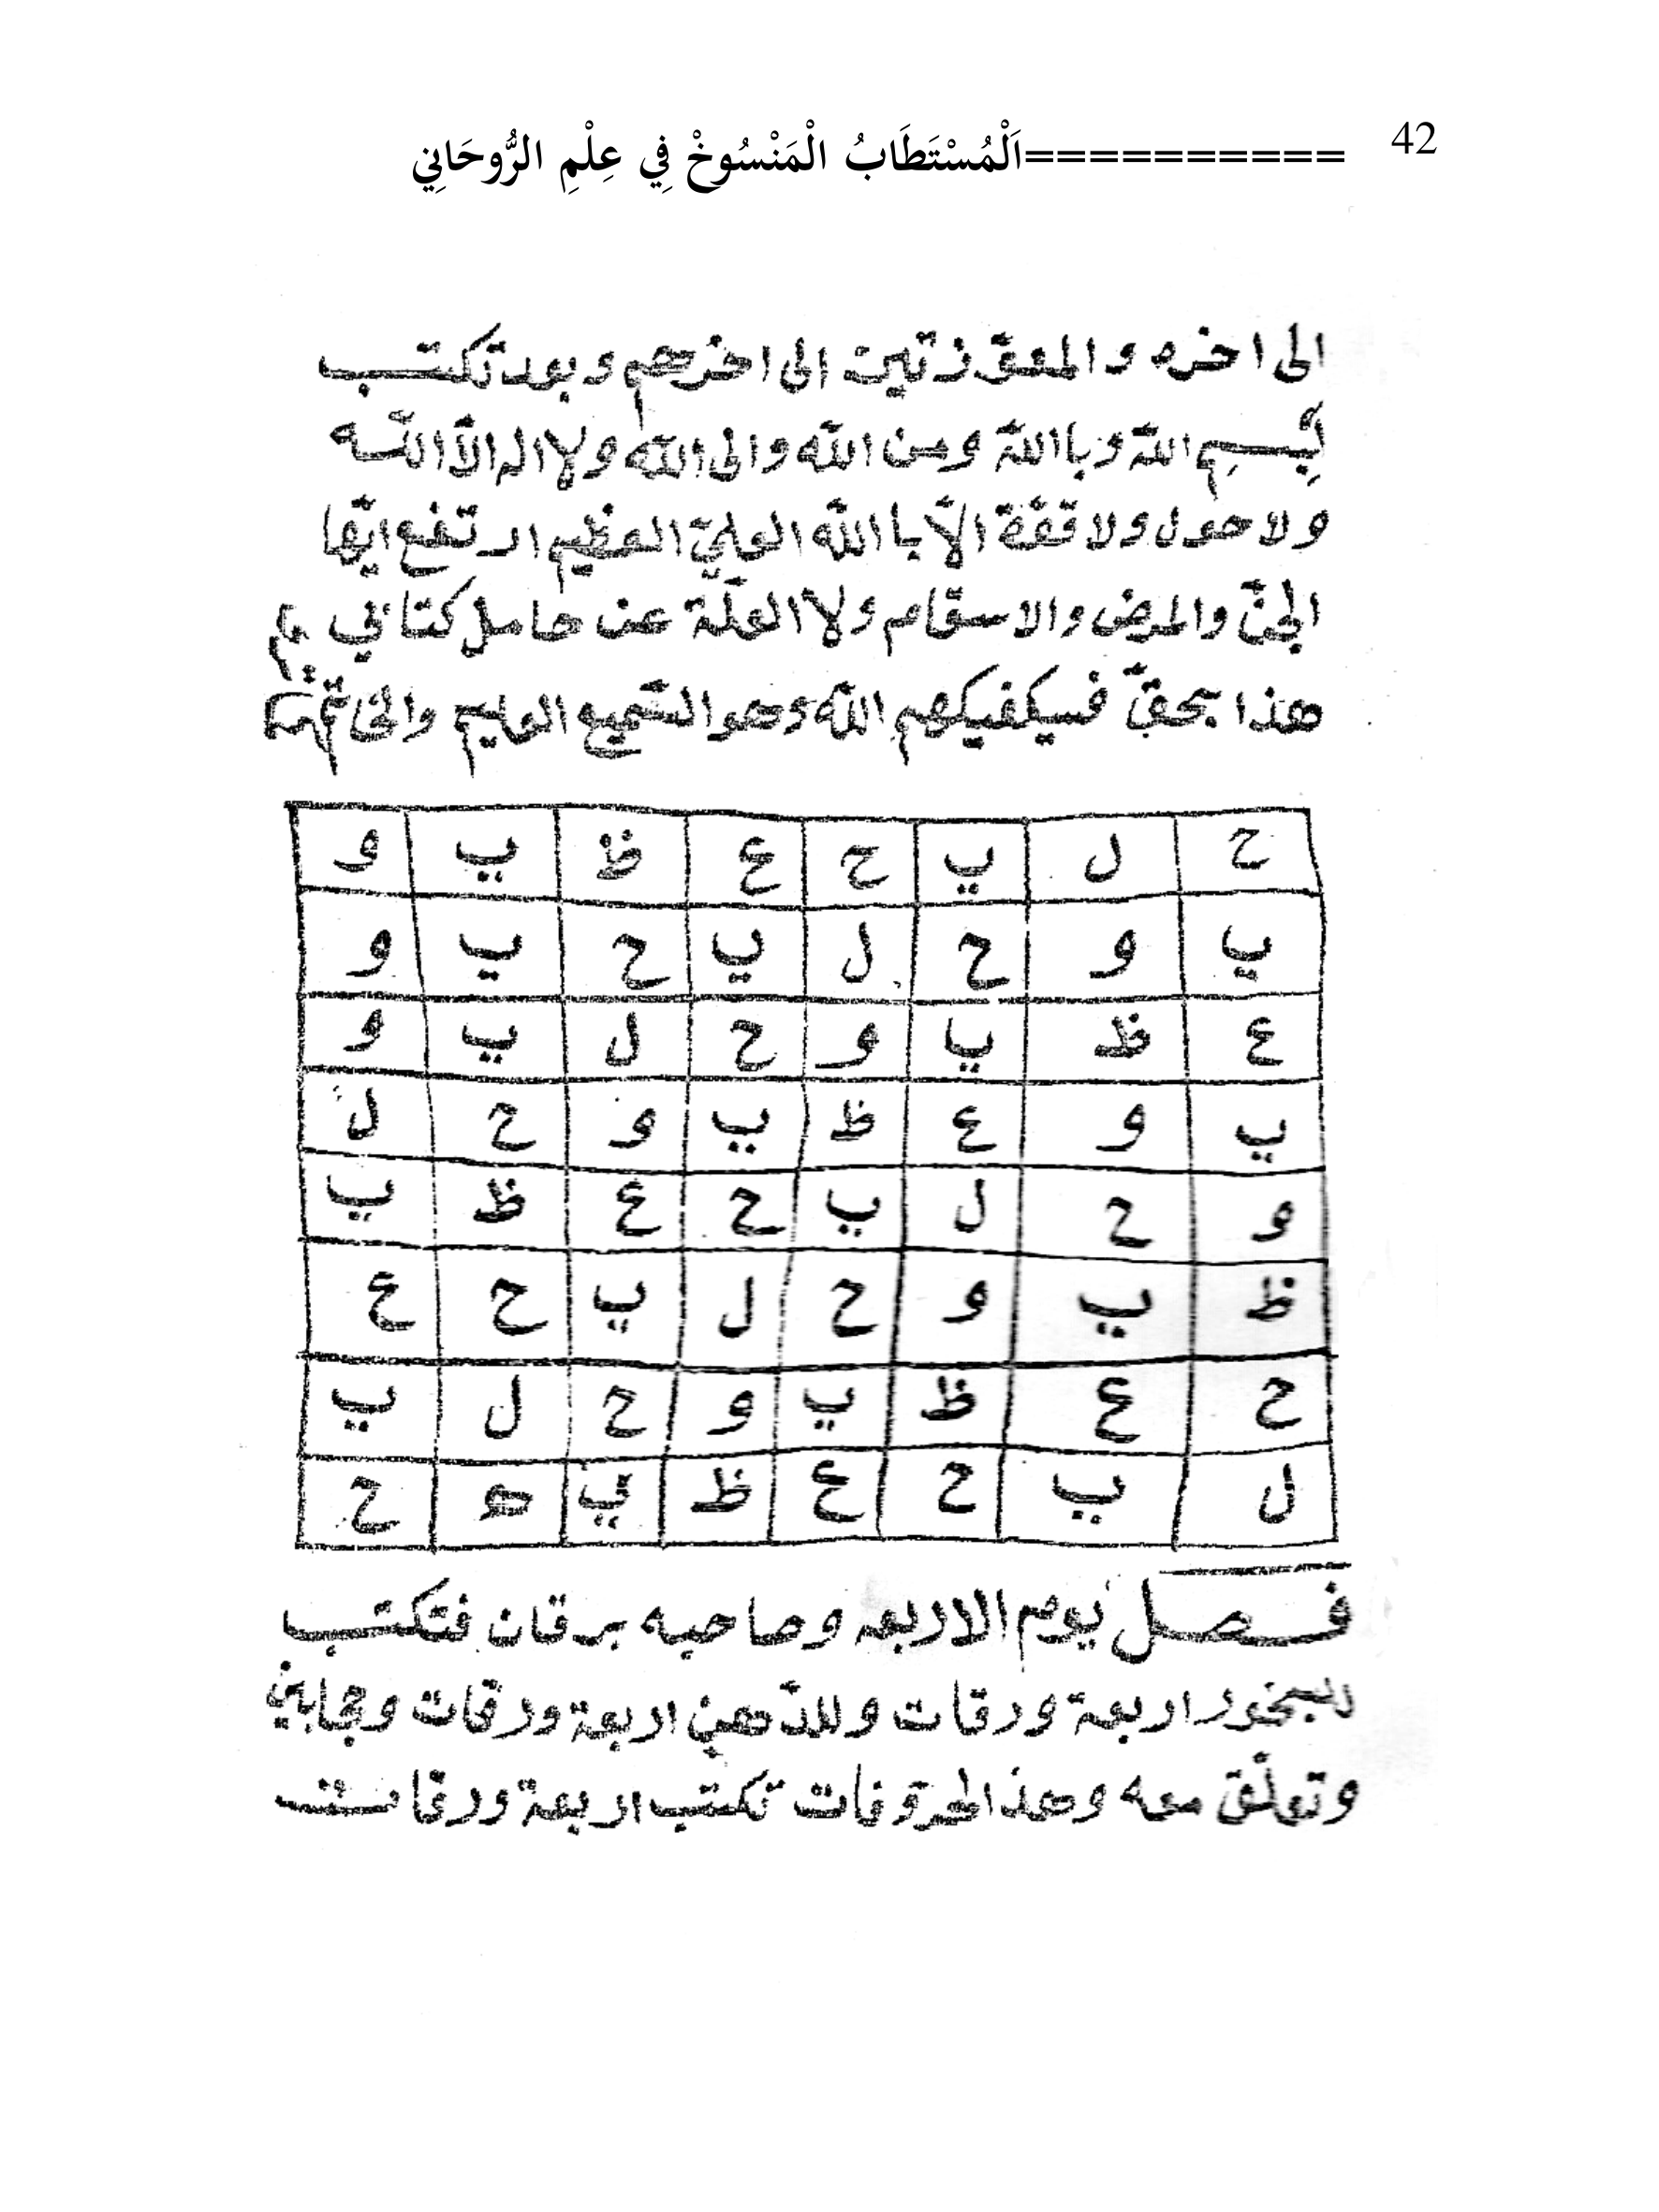 42
==========اَلْمُسْتَطَابُ الْمَنْسُوخْ فِي عِلْمِ الرُّوحَانِي
الى اخره والمعوّذتين الى اخرهم وبعد تكتب
بِسمِ اللّه وبااللّه ومن اللّه والى اللّه ولا اله الاّ اللّه
ولا حول ولا قوّة الاّ با اللّه العليّ العظيم ارتفع ايّها
الجنّ والمرض والاسقام ولا العلّة عن حامل كتابي
هذا بحقّ فسيكفيكهم اللّه وهو السّميع العليم والخاتم
ح ل ي ح ع ظ ي و
ي و ح ل ي ح ي و
ع ظ ي و ح ل ي و
ي و ع ظ ي و ح ل
و ح ل ي ح ع ظ ي
ظ ي و ح ل ي ح ع
ح ع ظ ي و ح ل ي
ل ي ح ع ظ ي ح
فصل يوم الاربعه وصاحبه برقان فتكتب
للبخور اربعة ورقات وللدّهن اربعة ورقات وحجابين
وتعلّق معه وهذ الحروفات تكتب اربعة ورقات